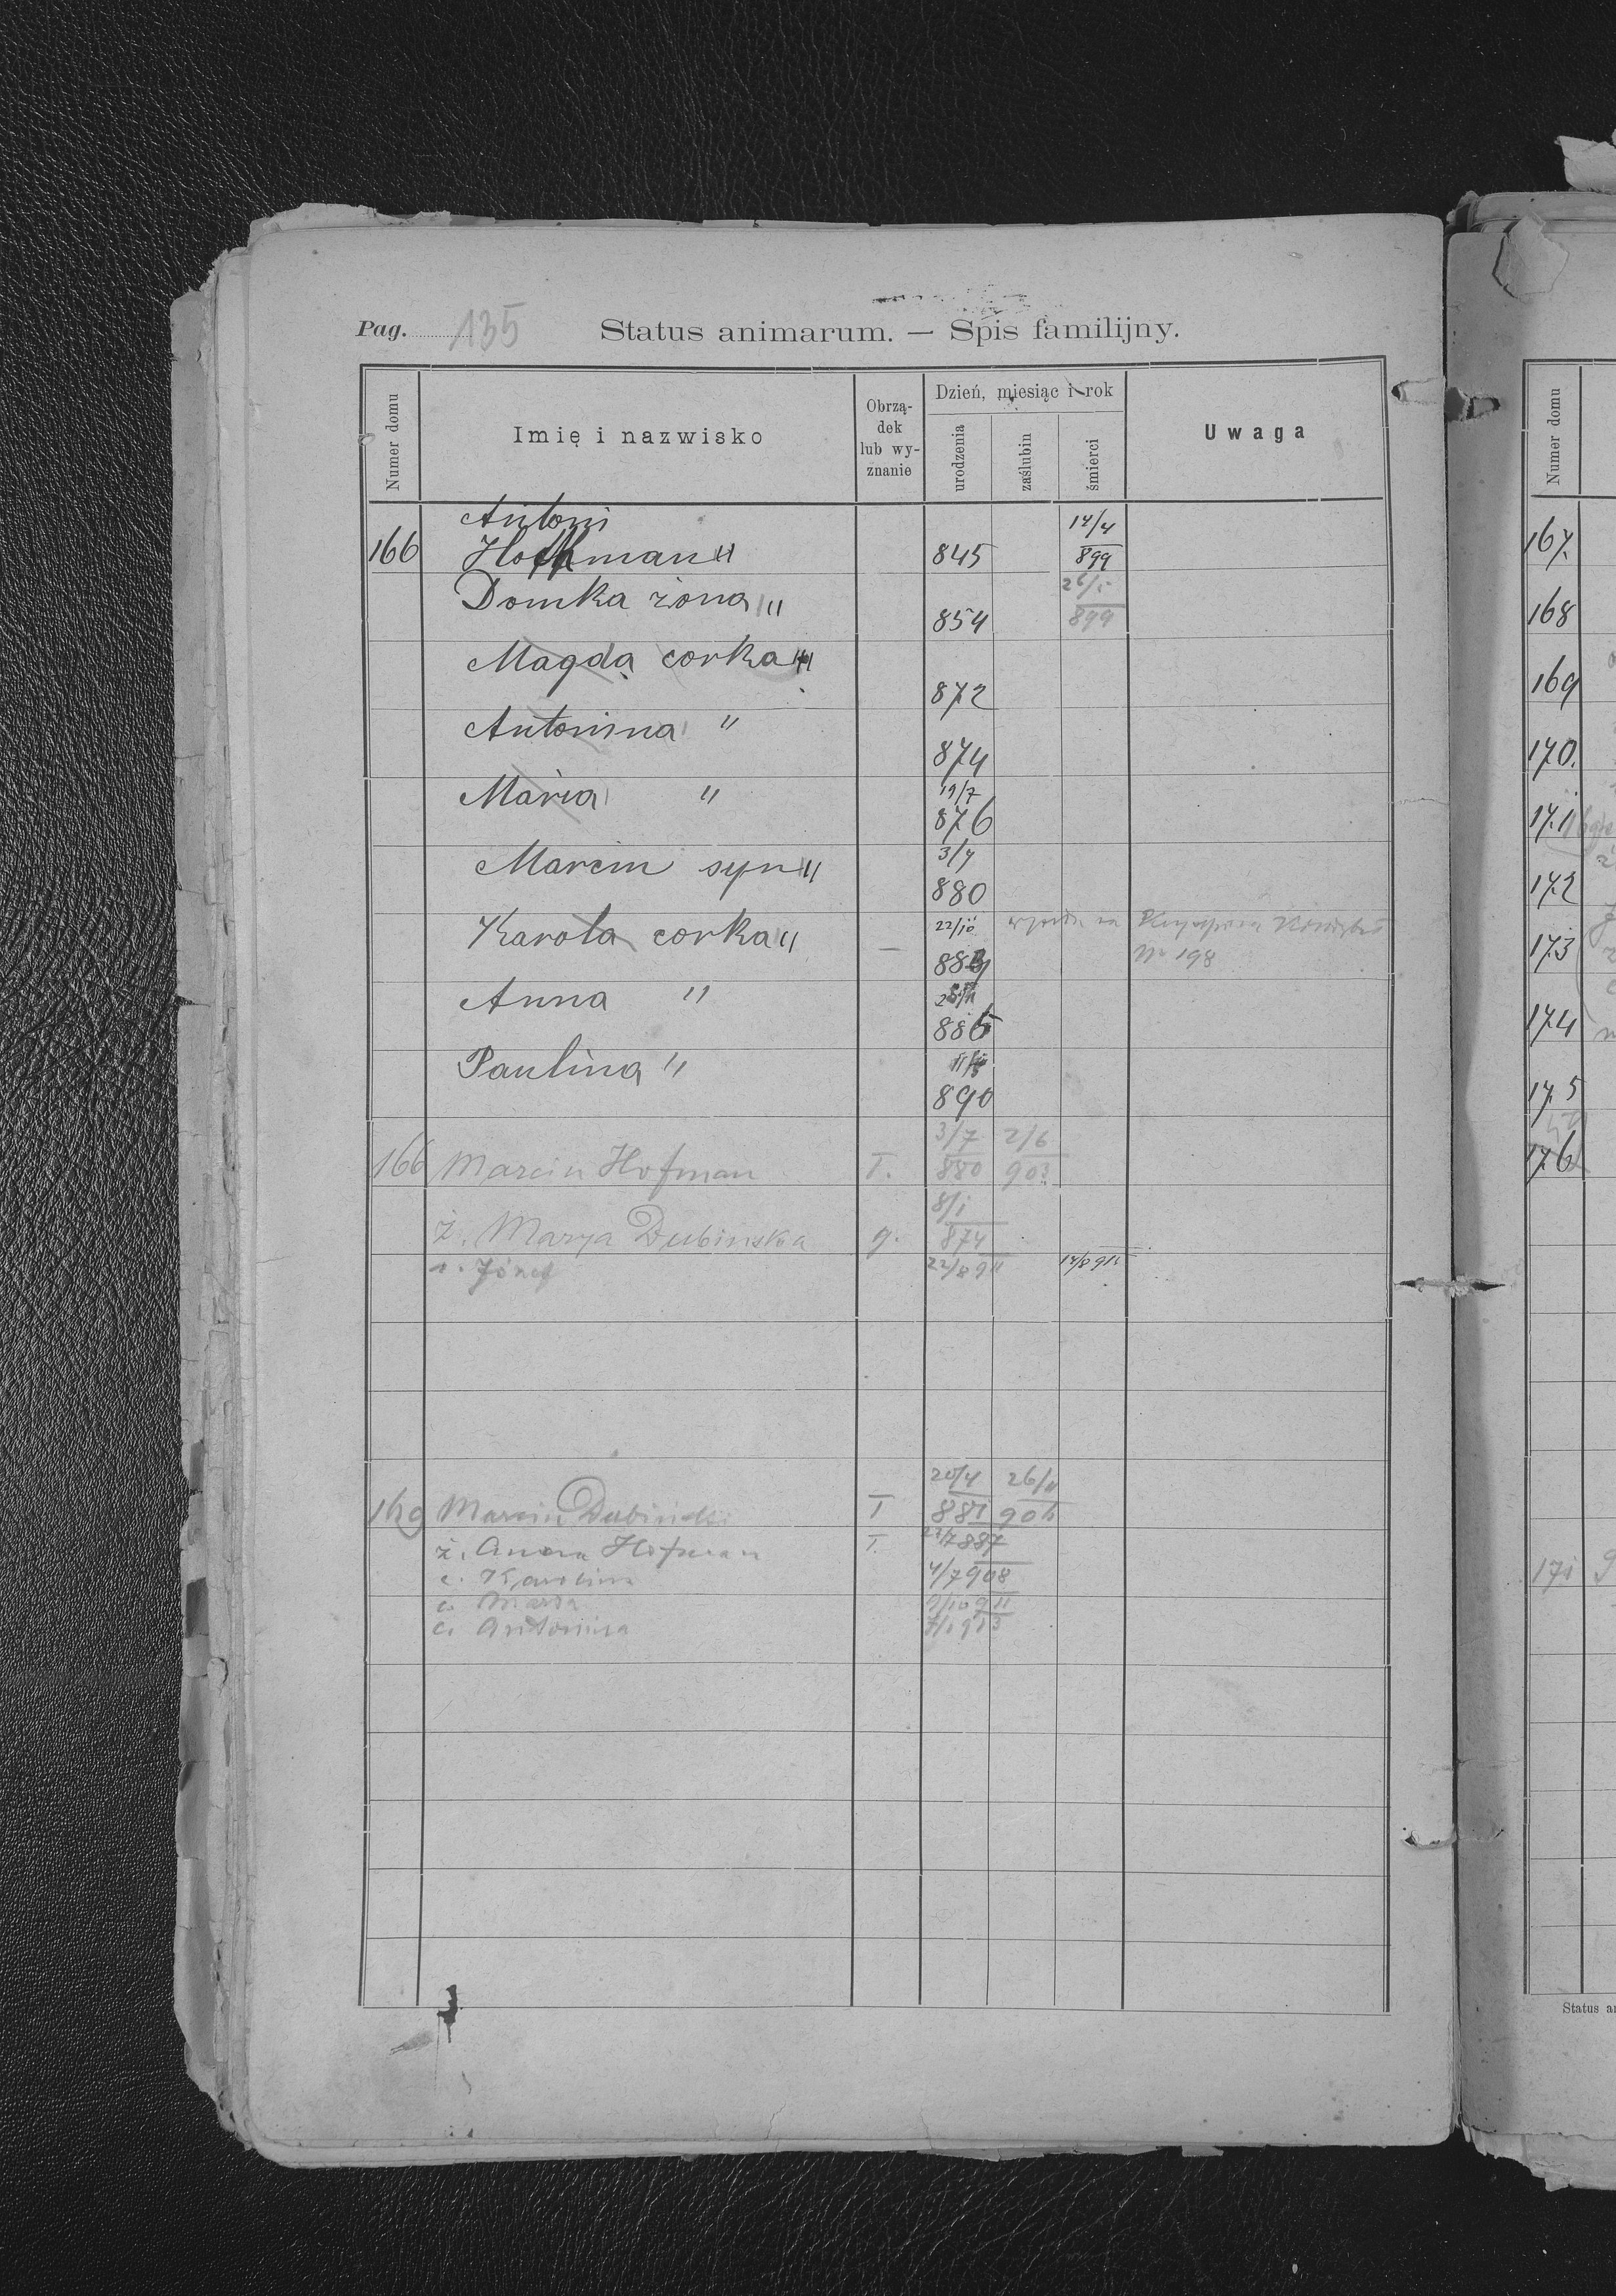 Pag. 135
Status animarum. — Spis familijny.
Numer domu
Imię i nazwisko
Obrzą-
dek
lub wy-
znanie
Dzień, miesiąc i rok
urodzenia
zaślubin
śmierci
Uwaga
Antoni 14/4
166 Hoffman " 845 899
Domka żona " 26/5
854 899
Magda corka "
872
Antonina "
874
Maria " 19/7
876
Marcin syn " 3/7
880
Karola corka " 22/10
883 No 198
Anna "
886
Paulina "
890
3/7 2/6
166 Marcin Hofman T. 880 903
8/1
ż. Marya Dubinska g. 874
s. Józef 22/8 911
20/4 26/11
169 Marcin Dubinski T 881 906
ż. Anna Hofman T. 887
c. Karolina 4/7 908
c. Marya 911
c. Antonina 913
Numer domu
167.
168
169
170.
171
172
173
174
175
176
171
Status a